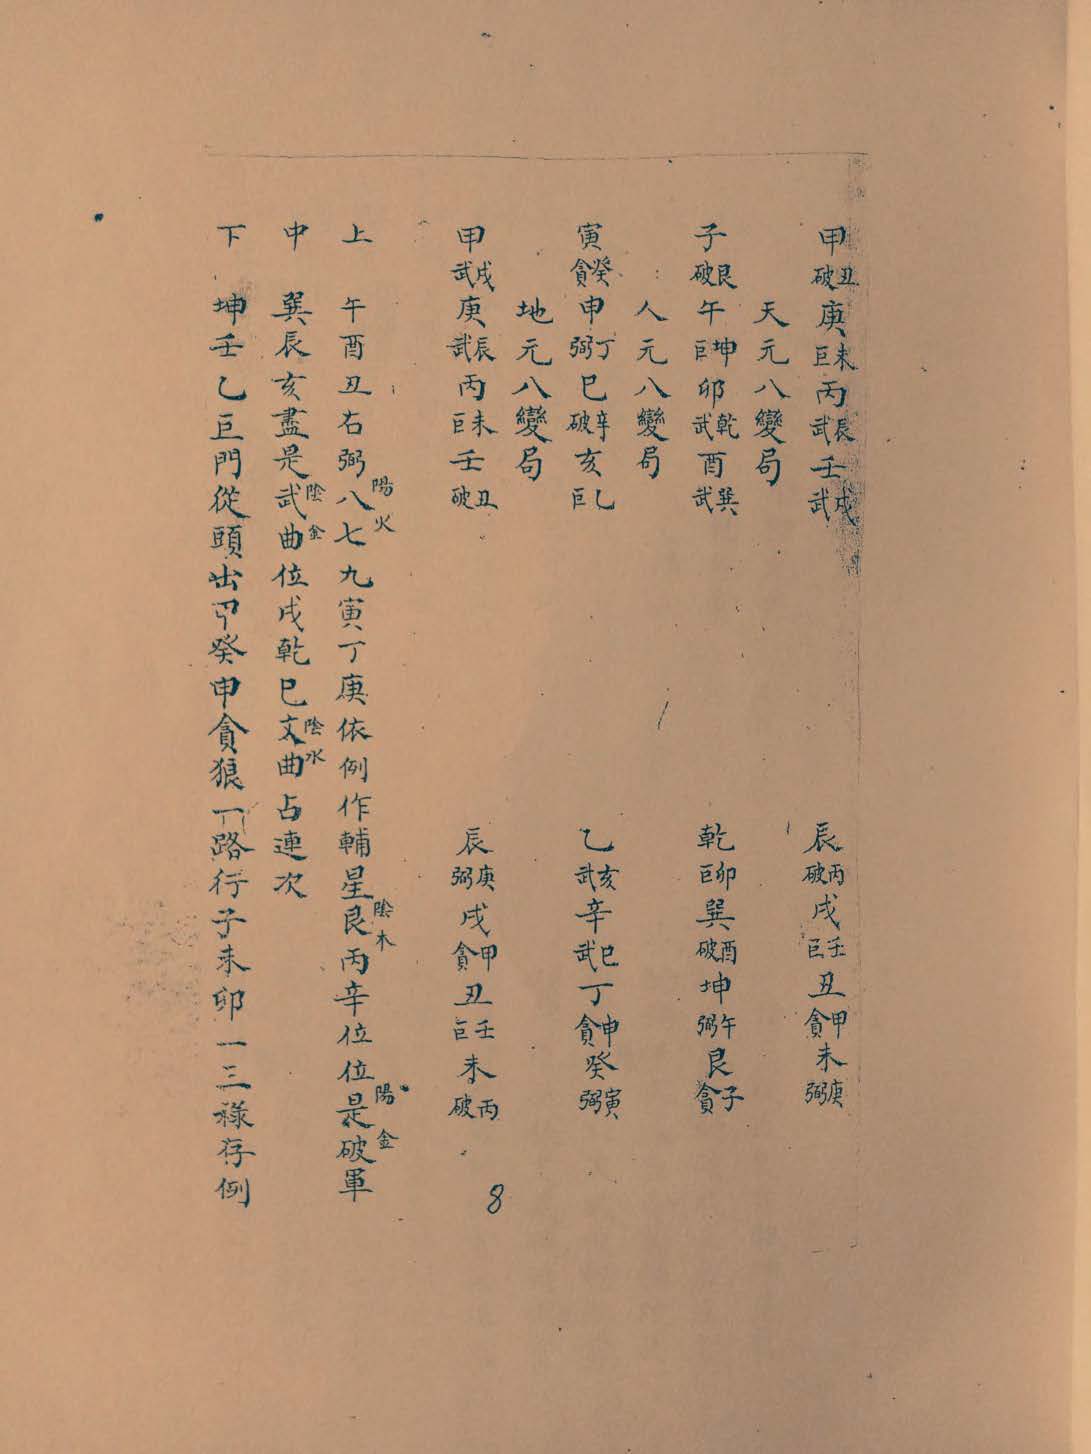 甲丑破庚未巨丙辰武壬戌武 辰丙破戌壬巨丑甲貪未庚弼
天元八變局
子艮破午坤巨卯乾武酉巽武 乾卯巨巽酉破坤午弼艮子貪
人元八變局
寅癸貪申丁弼巳辛破亥乙巨 乙亥武辛巳武丁申貪癸寅弼
地元八變局
甲戌武庚辰武丙未巨壬丑破 辰庚弼戌甲貪丑壬巨未丙破
上 午酉丑右弼陽火八七九寅丁庚依例作輔星陰木艮丙辛位位是破軍陽金
中 巽辰亥盡是武曲陰金位戌乾巳文曲陰水占連次
下 坤壬乙巨門從頭出甲癸申貪狼一路行子未卯一三祿存例
8